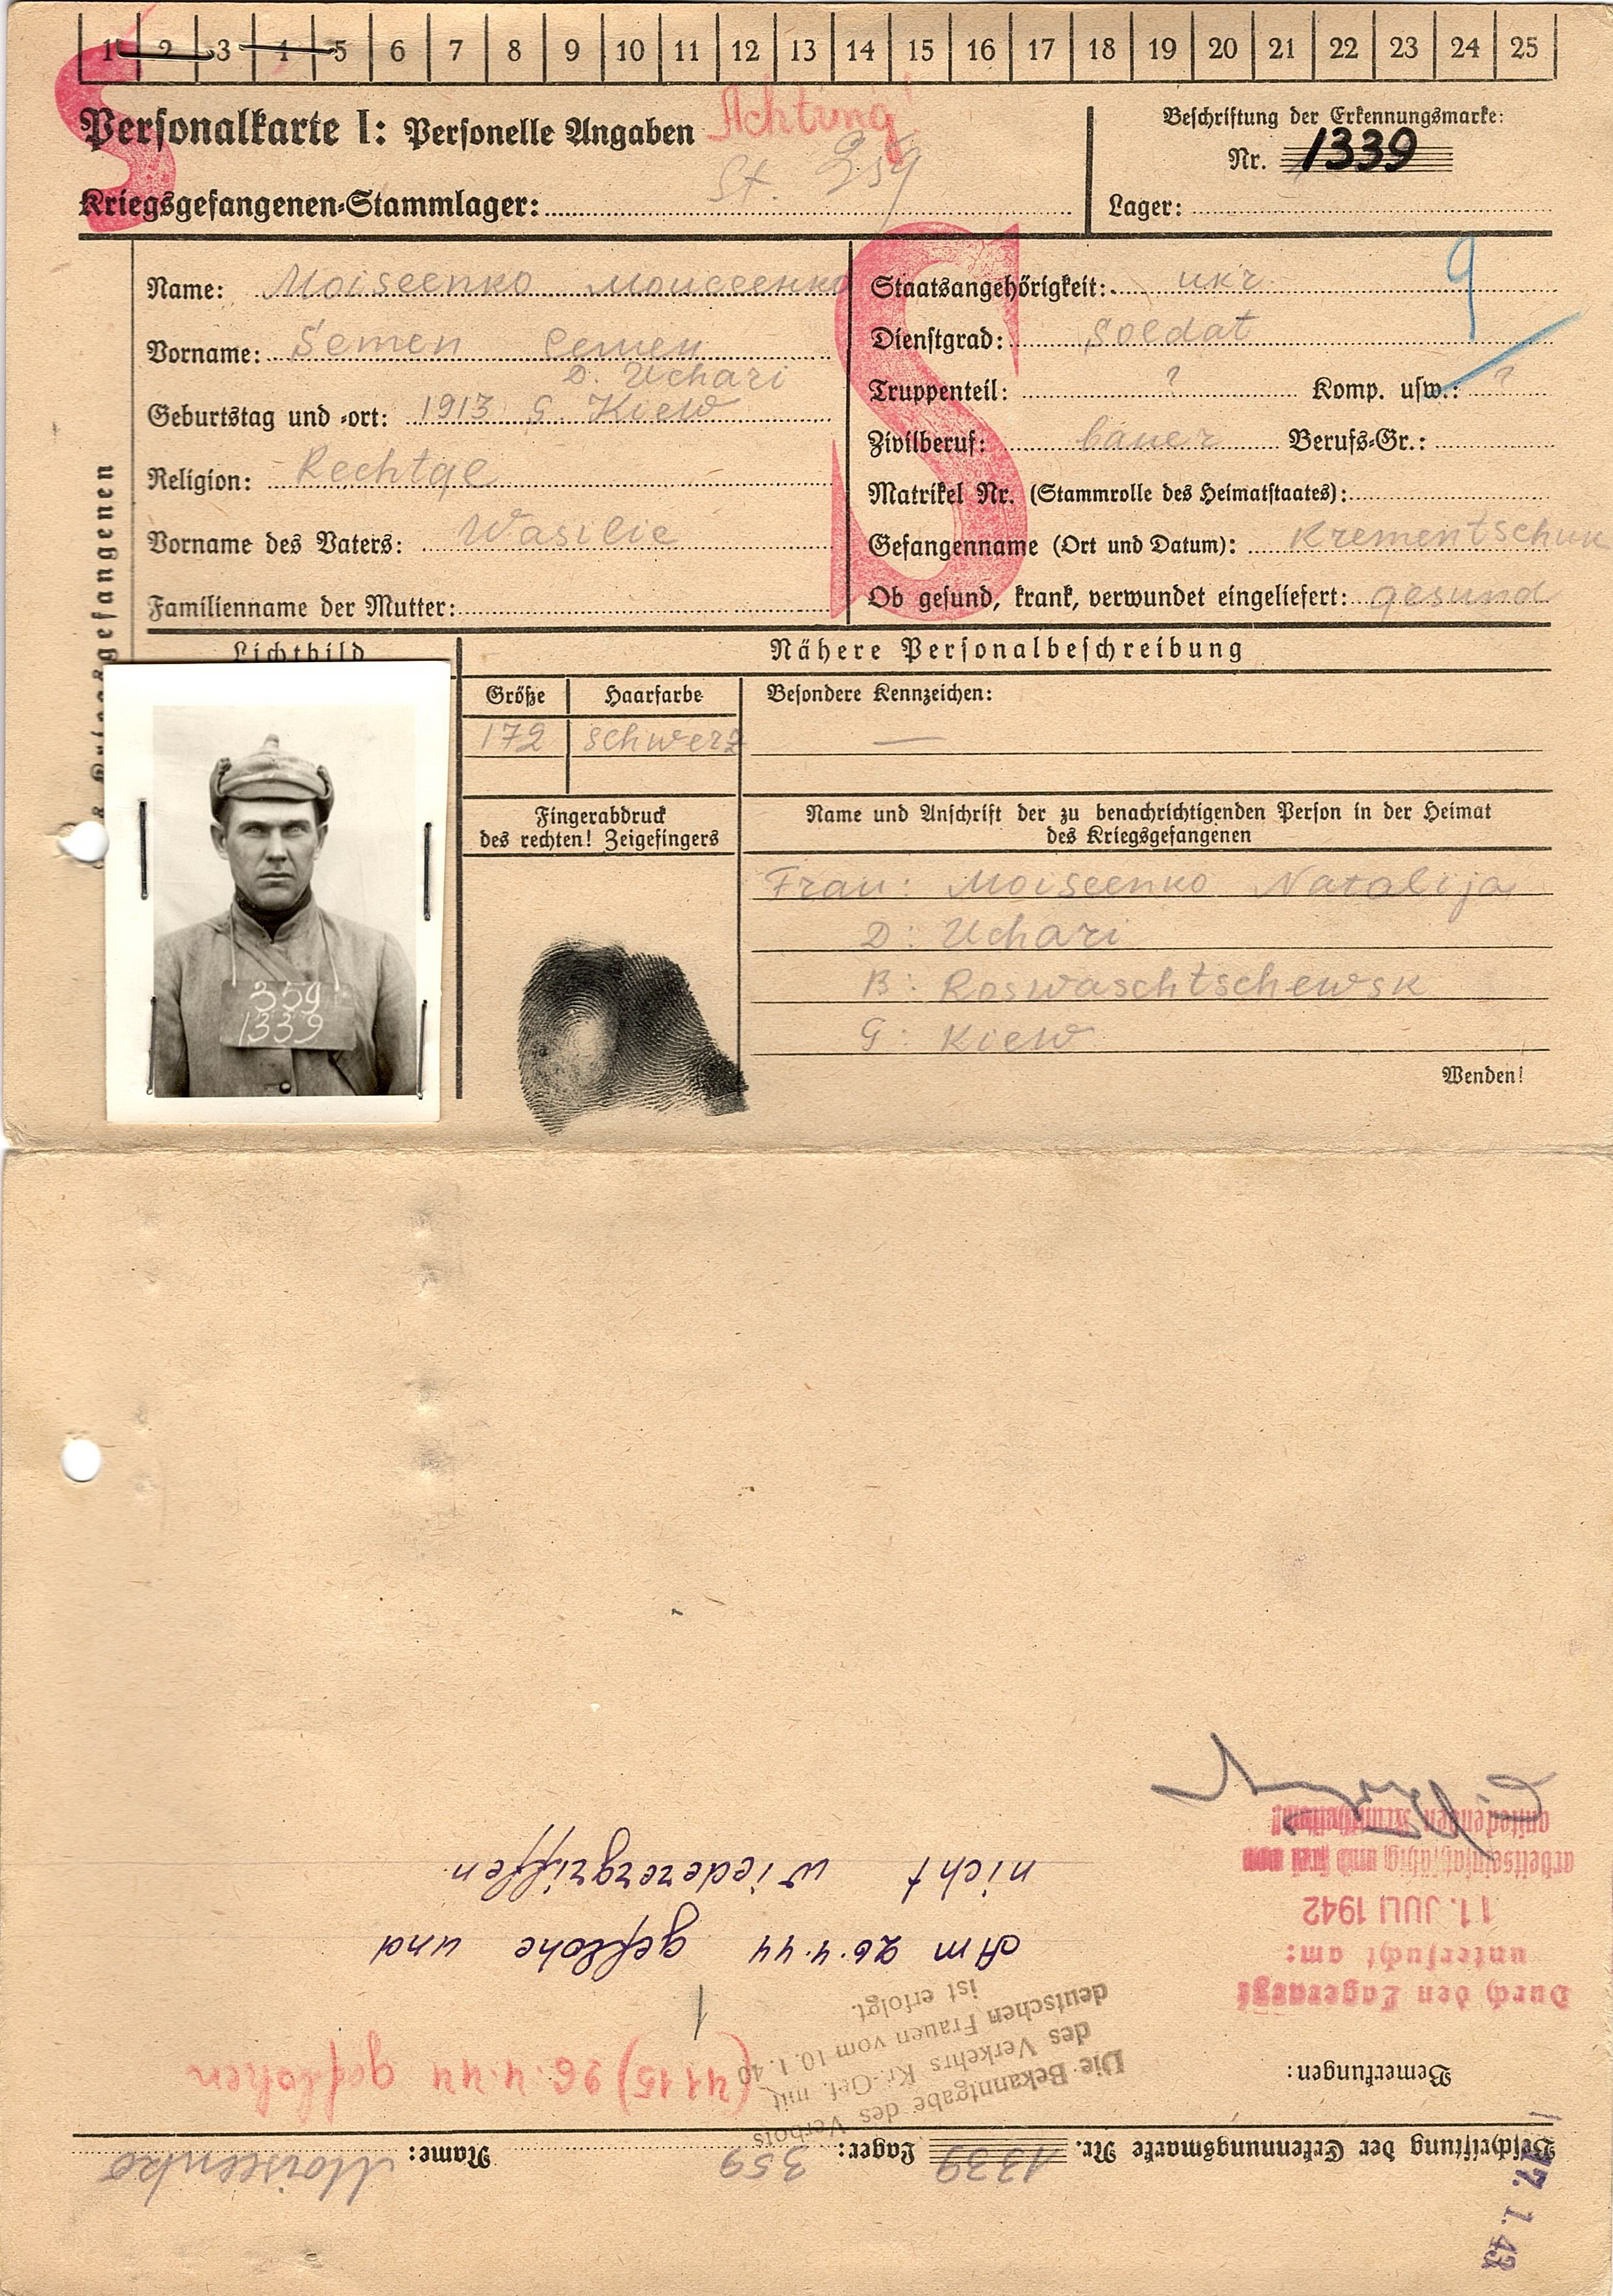 1 2 3 4 5 6 7 8 9 10 11 12 13 14 15 16 17 18 19 20 21 22 23 24 25
S
Personalkarte I: Personelle Angaben
Achtung!
Kriegsgefangenen-Stammlager: St. 359
Beschriftung der Erkennungsmarke:
Nr. 1339
Lager:
des Kriegsgefangenen
Name: Moiseenko Моисеенко
Vorname: Semen Семен
D. Uchari
Geburtstag und -ort: 1913 G. Kiew
Religion: Rechtgl
Vorname des Vaters: Wasilie
Familienname der Mutter:
S
Staatsangehörigkeit: ukr.
9
Dienstgrad: Soldat
Truppenteil: ? Komp. usw.: ?
Zivilberuf: bauer Berufs-Gr.:
Matrikel Nr. (Stammrolle des Heimatstaates):
Gefangenname (Ort und Datum): Krementschuk
Ob gesund, krank, verwundet eingeliefert: gesund
Lichtbild
Nähere Personalbeschreibung
Größe Haarfarbe Besondere Kennzeichen:
172 schwerz —
359
1339
Fingerabdruck
des rechten! Zeigefingers
Name und Anschrift der zu benachrichtigenden Person in der Heimat
des Kriegsgefangenen
Frau: Moiseenko Natalija
D: Uchari
B: Roswaschtschewsk
G: Kiew
Wenden!
17. 1. 43
Beschriftung der Erkennungsmarke Nr. 1339 Lager: 359 Name: Moiseenko
Bemerkungen:
Die Bekanntgabe des Verbots
des Verkehrs Kr.-Gef. mit
deutschen Frauen vom 10. 1. 40
ist erfolgt.
(4115) 26.4.44 geflohen
1
Durch den Lagerarzt
untersucht am:
11. JULI 1942
arbeitseinsatzfähig und frei von
ansteckenden Krankheiten!
Am 26.4.44 geflohe und
nicht wiederergriffen